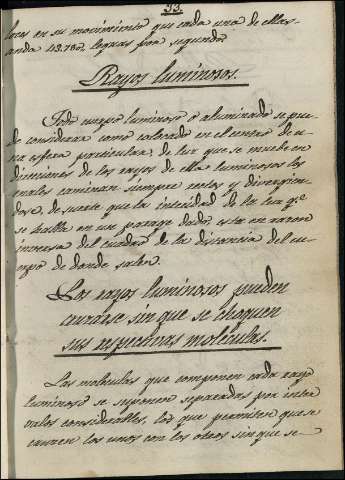 33.
loces en su movimiento que cada una de ellas
anda 43.750, leguas por segundo
Rayos luminosos.
Todo cuerpo luminoso ó aluminado se pue-
de considerar como colocado en el centro de u-
na esfera particular, de luz que se mueve en
direciones de los rayos de ella luminosos los
cuales caminan siempre rectos y divergien-
dose, de suerte que la intecidad de la luz qe.
se halla en un parage dado, esta en razon
inversa del cuadro de la distancia del cu-
erpo de donde salen.
Los rayos luminosos pueden
cruzarse sin que se choquen
sus respectivas moléculas.
Las moleculas que componen cada rayo
luminoso se suponen separadas por inter
valos considerables, los que permiten que se
crucen los unos con los otros sin que se